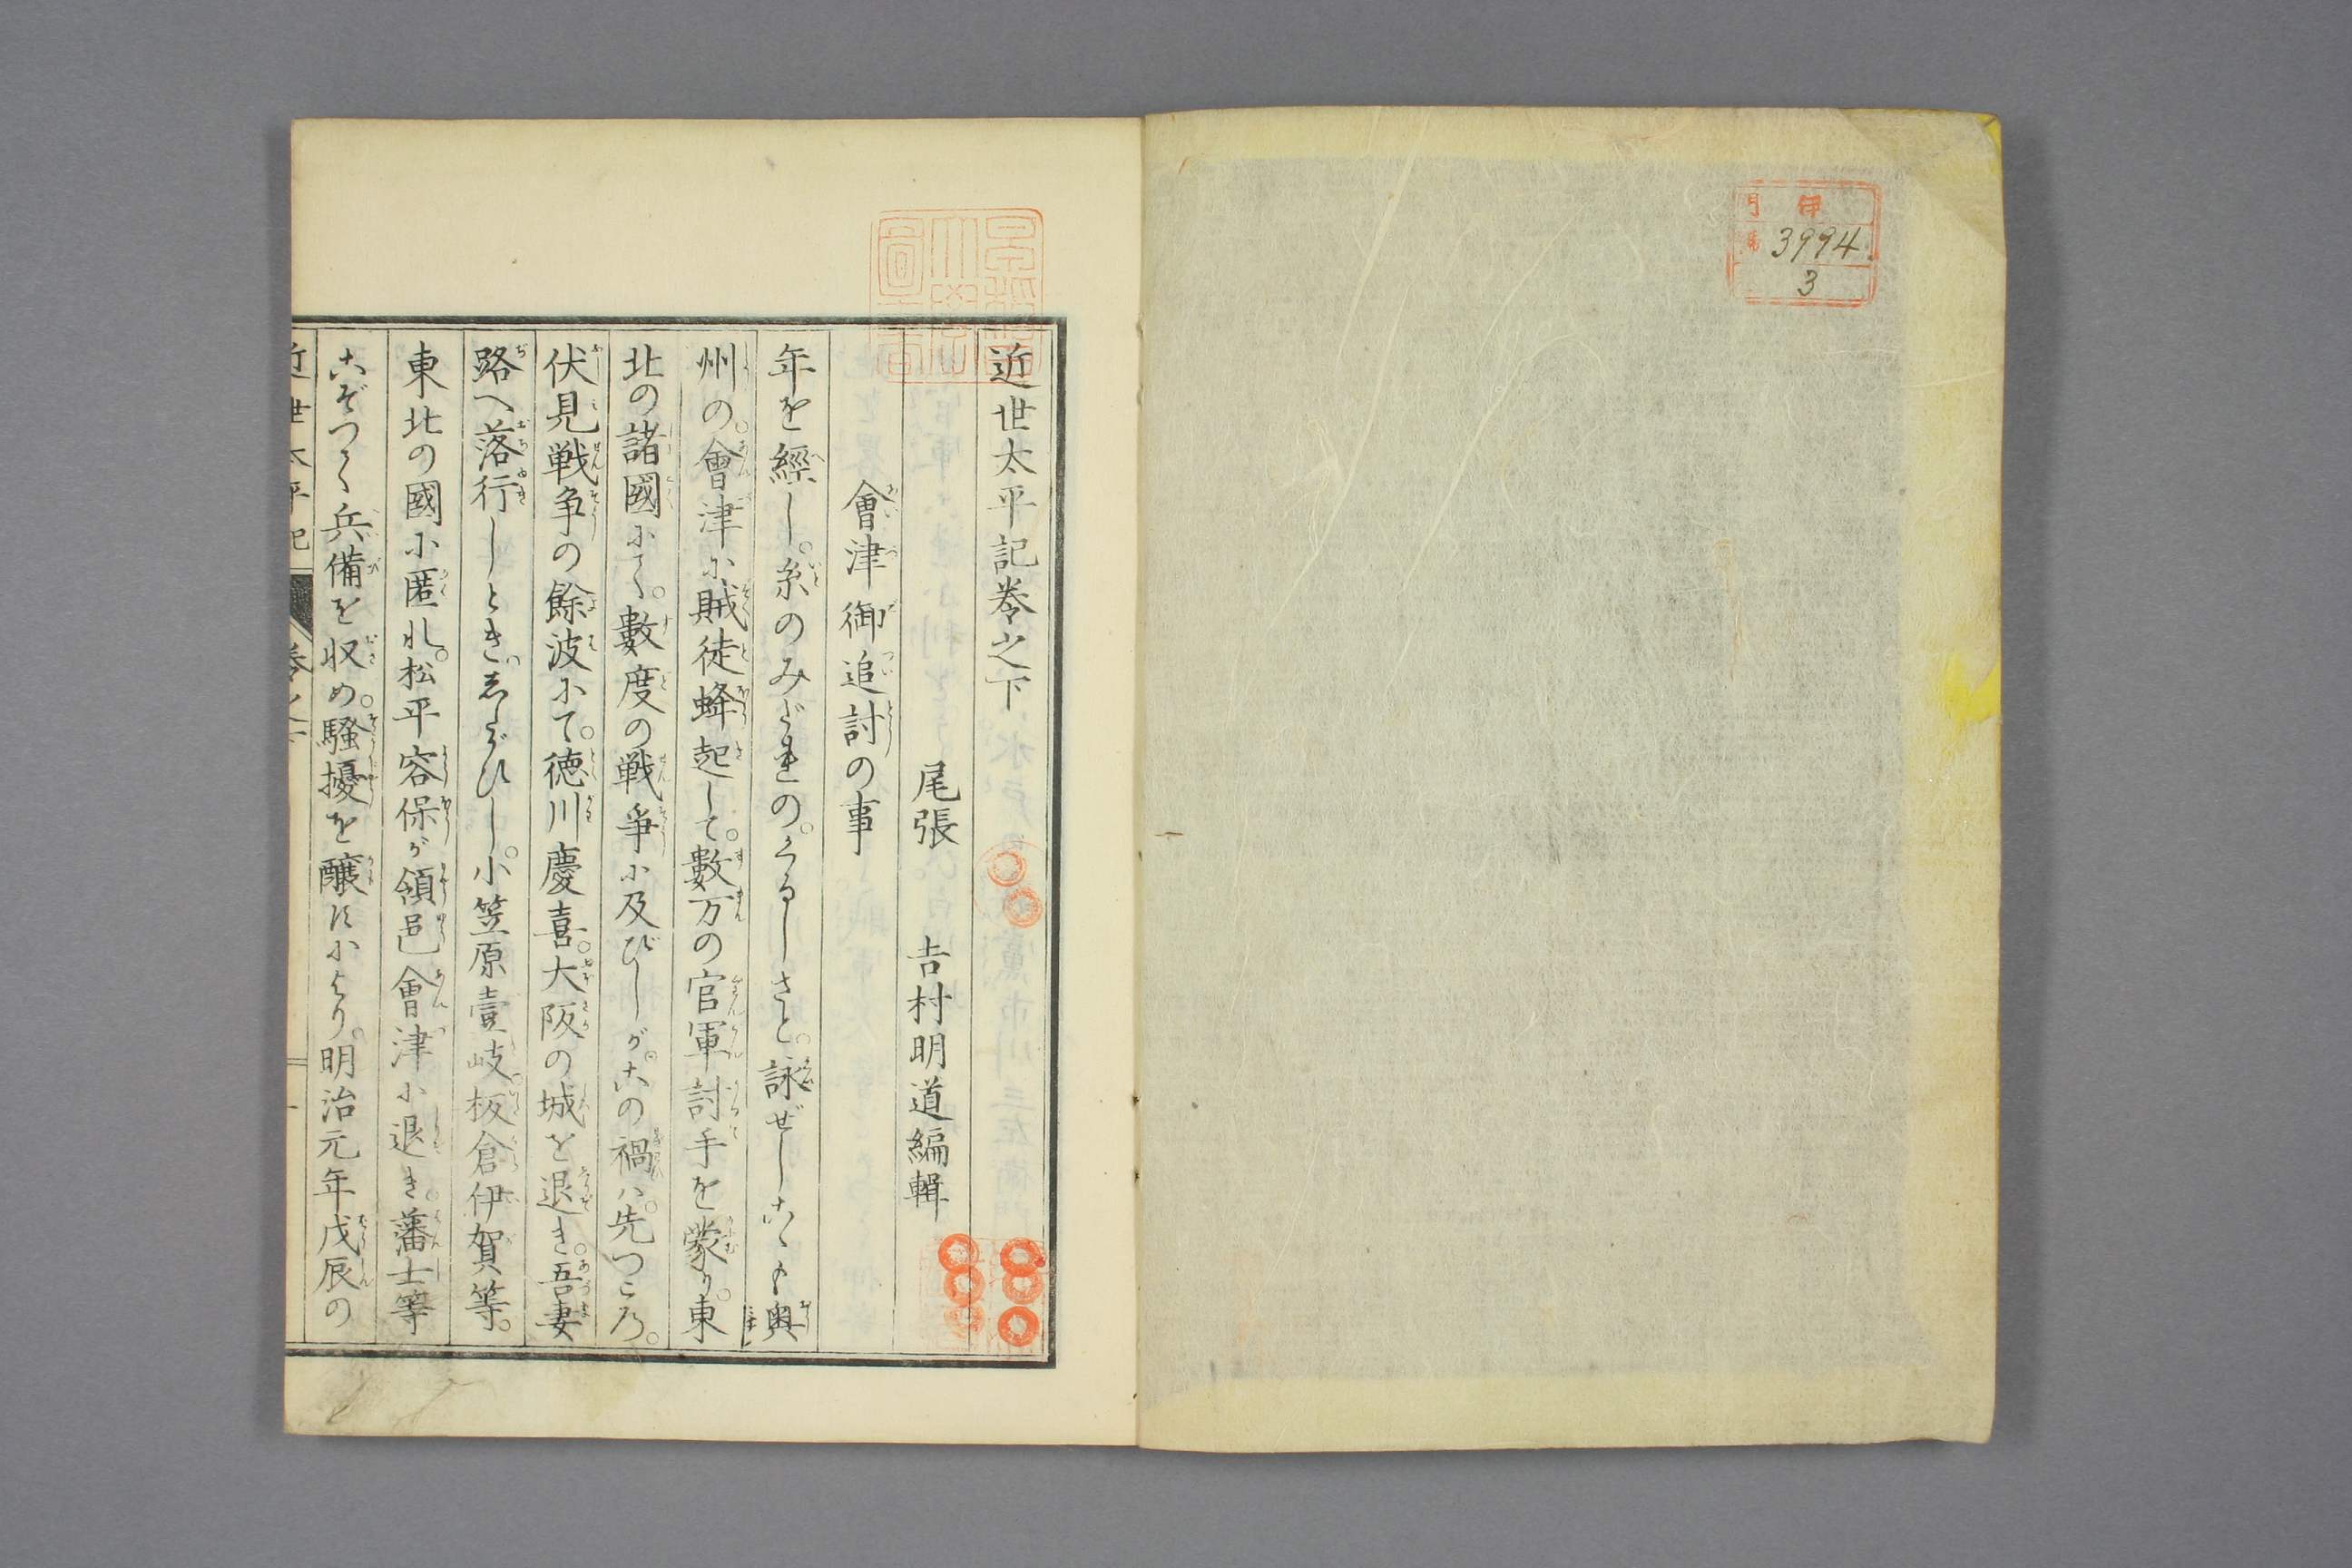 門 伊
第 3994
3
近世太平記巻之下
尾張 吉村明道編輯
會津御追討の事
年を經し。糸のみだれの。くるしさと。詠ぜしこゝも奥
州の。會津に賊徒蜂起して。數万の官軍討手を蒙り。東
北の諸國にて。數度の戦爭に及びしが。この禍ハ。先つころ。
伏見戦争の餘波にて。徳川慶喜。大阪の城を退き。吾妻
路へ落行しとき。したがひし。小笠原壹岐。板倉伊賀等。
東北の國に匿れ。松平容保が領邑會津に退き。藩士等
こぞつて兵備を収め。騒擾を醸すにより。明治元年戊辰の
近世太平記 巻之下